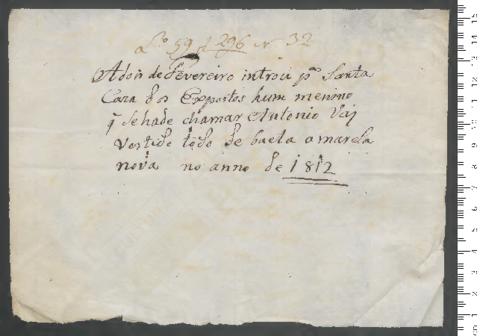 Lº 59 f 296 nº 32
A dois de Fevereiro introu pª Santa
Caza dos Expostos hum menino
q̃ se hade chamar Antonio Vaj
Vestido todo de baeta amarela
nova no anno de 1812